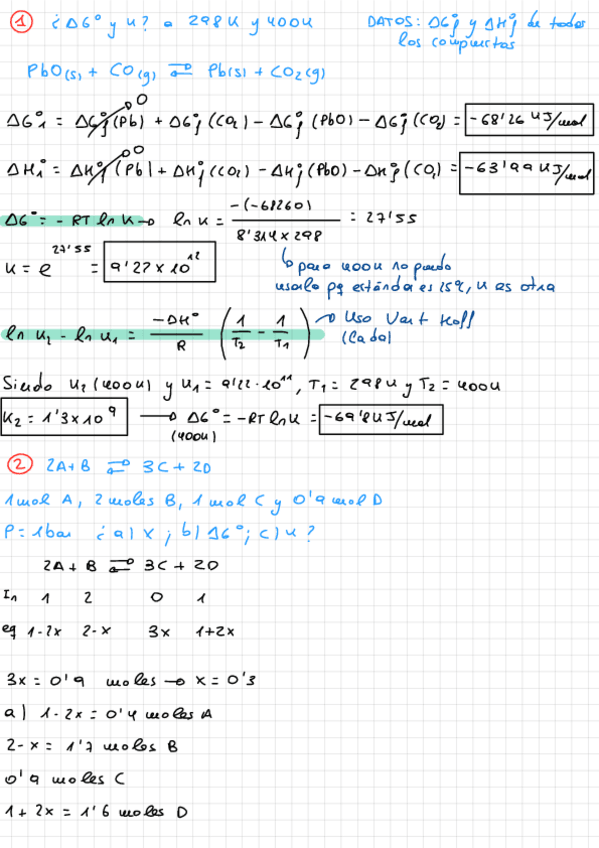 ① ¿ΔG° y K? a 298K y 400K DATOS: ΔG°f y ΔH°f de todos los compuestos
PbO(s) + CO(g) ⇌ Pb(s) + CO2(g)
ΔG°1 = ΔG°f(Pb) 0 + ΔG°f(CO2) - ΔG°f(PbO) - ΔG°f(CO) = -68'26 KJ/mol
ΔH°1 = ΔH°f(Pb) 0 + ΔH°f(CO2) - ΔH°f(PbO) - ΔH°f(CO) = -63'99 KJ/mol
ΔG° = -RT ln K → ln K = -(-68260) / 8'314 x 298 = 27'55
K = e^27'55 = 9'27 x 10^12
↳ para 400K no puedo
usarlo pq estándar es 25°C, K as otra
ln K2 - ln K1 = -ΔH°/R (1/T2 - 1/T1) → Uso Vant Hoff
(Cada)
Siendo K2 (400K) y K1 = 9'22·10^11, T1 = 298K y T2 = 400K
K2 = 1'3x10^9 → ΔG° = -RT ln K = -69'8 KJ/mol
(400K)
② 2A+B ⇌ 3C + 2D
1 mol A, 2 moles B, 1 mol C y 0'9 mol D
P = 1bar ¿a) X; b) ΔG°; c) K?
2A + B ⇌ 3C + 2D
In 1 2 0 1
eq 1-2x 2-x 3x 1+2x
3x = 0'9 moles → x = 0'3
a) 1-2x = 0'4 moles A
2-x = 1'7 moles B
0'9 moles C
1+2x = 1'6 moles D